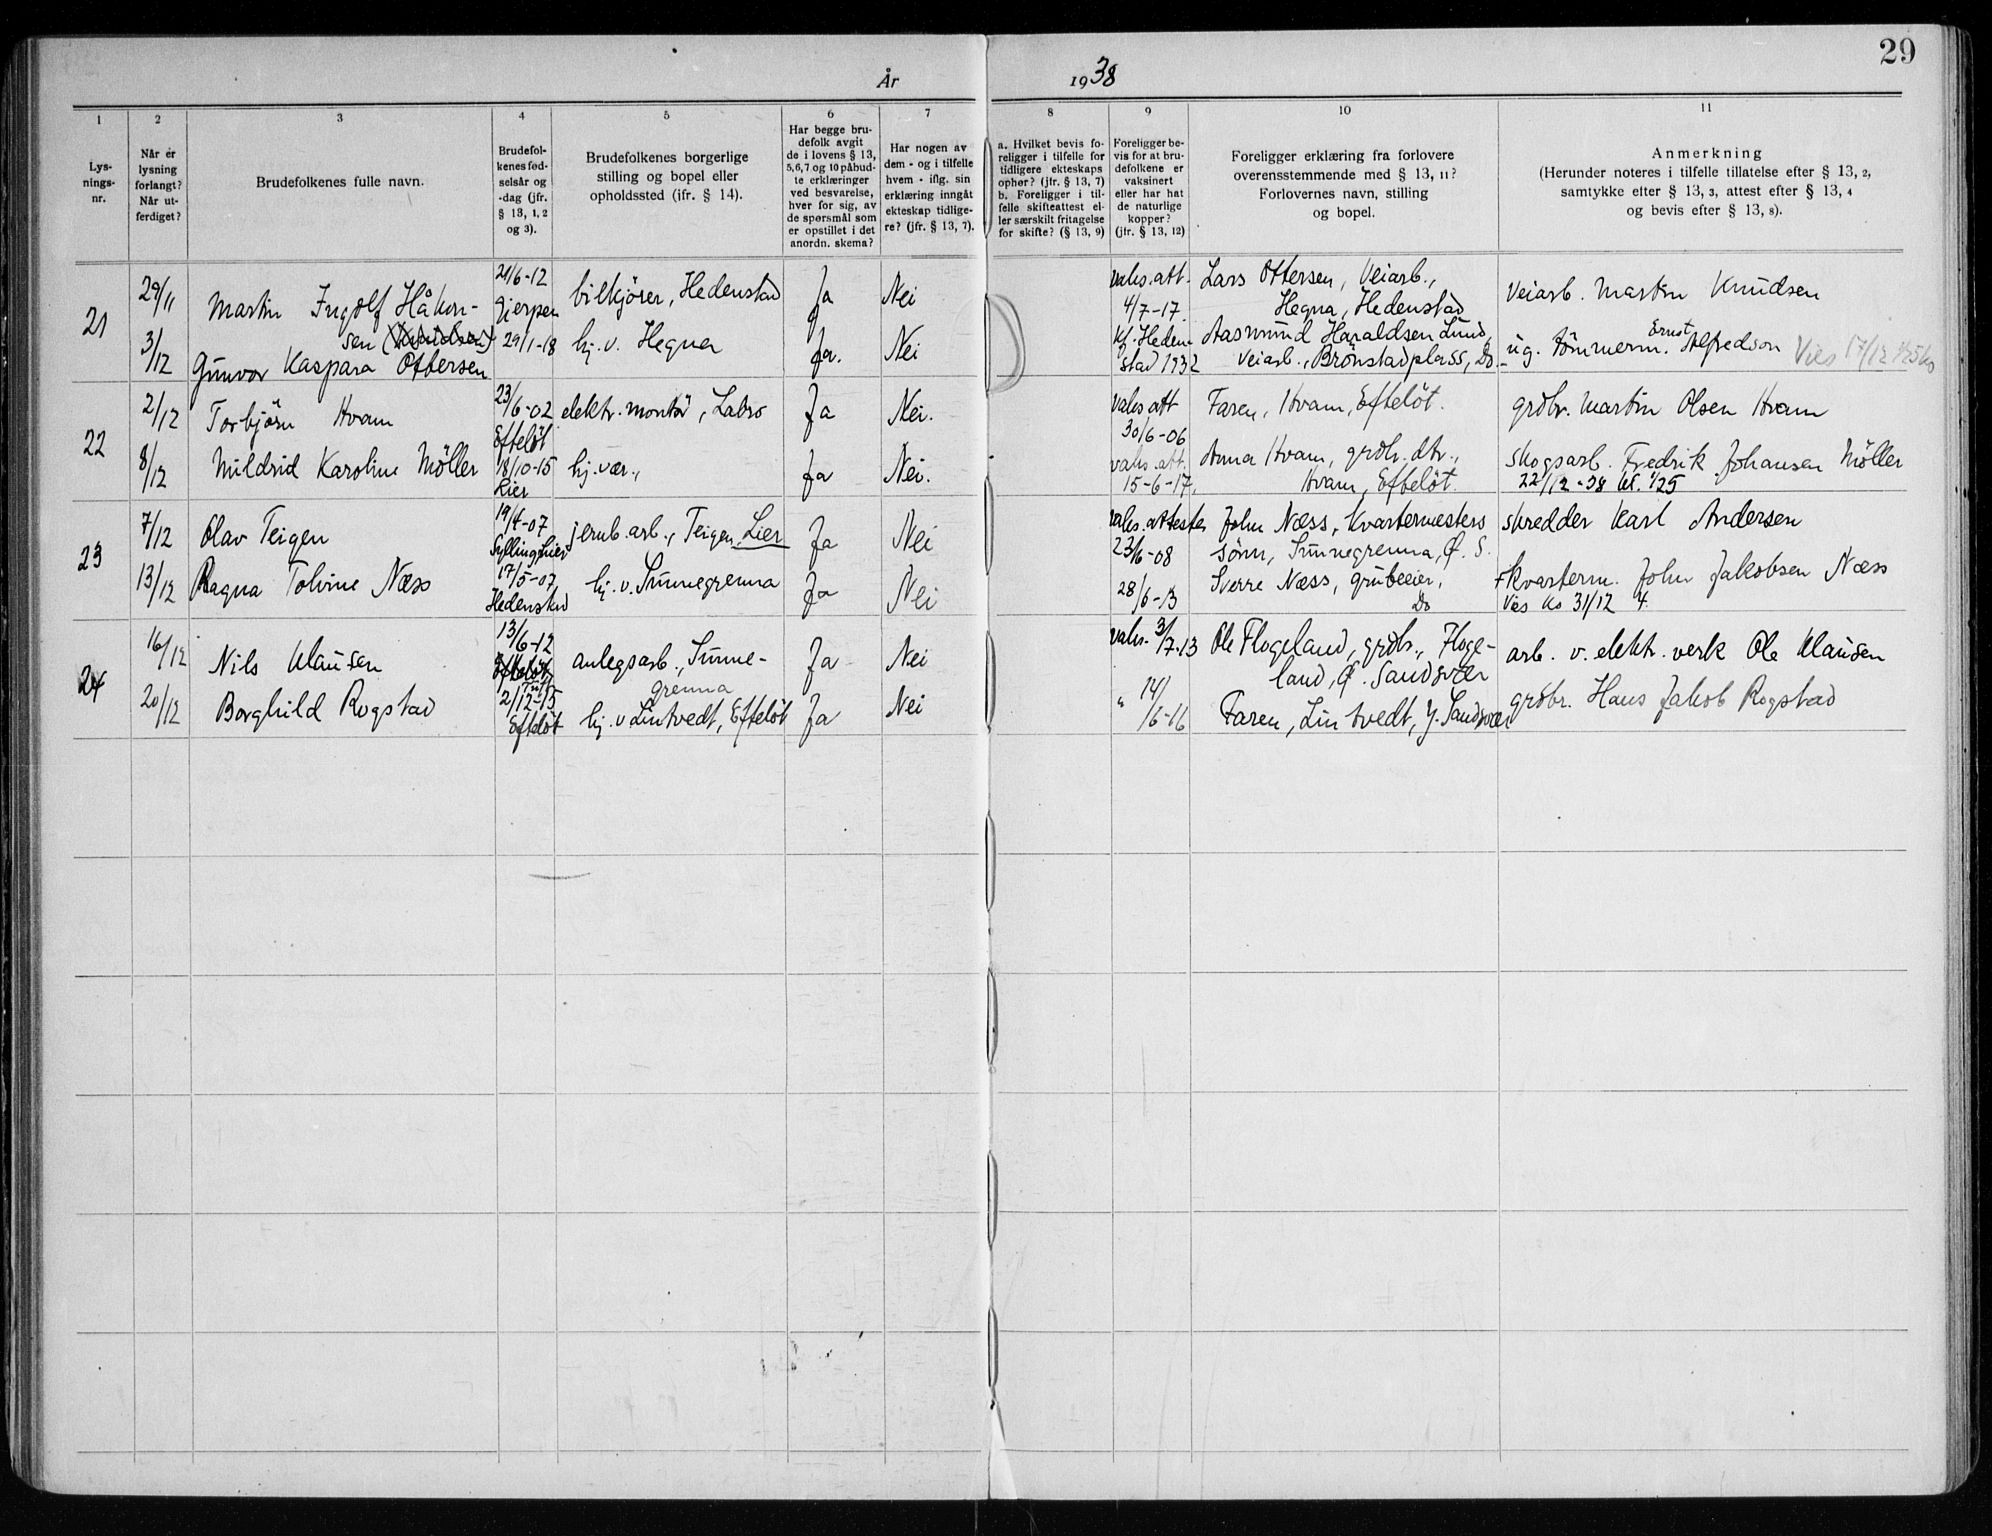 29
År 1938
1 2 3 4 5 6 7 8 9 10 11
Lys-
nings-
nr.
Når er
lysning
forlangt?
Når ut-
ferdiget?
Brudefolkenes fulle navn.
Brudefol-
kenes fød-
selsår og
-dag (jfr.
§ 13, 1, 2
og 3).
Brudefolkenes borgerlige
stilling og bopel eller
opholdssted (jfr. § 14).
Har begge bru-
defolk avgit
de i lovens § 13,
5,6,7 og 10 påbud-
te erklæringer
ved besvarelse,
hver for sig, av
de spørsmål som
er opstillet i det
anordn. skema?
Har nogen av
dem - og i tilfelle
hvem - iflg. sin
erklæring inngåt
ekteskap tidlige-
re? (jfr. § 13, 7).
a. Hvilket bevis fo-
religger i tilfelle for
tidligere ekteskaps
ophør? (jfr. § 13, 7)
b. Foreligger i til-
felle skifteattest el-
ler særskilt fritagelse
for skifte? (§ 13, 9)
Foreligger be-
vis for at bru-
defolkene er
vaksinert
eller har hat
de naturlige
kopper?
(jfr. § 13, 12)
Foreligger erklæring fra forlovere
overensstemmende med § 13, 11?
Forlovernes navn, stilling
og bopel.
Anmerkning
(Herunder noteres i tilfelle tillatelse efter § 13, 2,
samtykke efter § 13, 3, attest efter § 13, 4
og bevis efter § 13, 8).
21
29/11
3/12
Martin Ingolf Håkon-
sen (Knudsen)
Gunvor Kaspara Ottersen
21/6-12
Gjerpen
29/1-18
bilkjörer, Hedenstad
hj. v. Hegna
Ja
Ja.
Nei
Nei
vaks. att.
4/7-17.
Kf. Heden-
stad 1932
Lars Ottersen, Veiarb.,
Hegna, Hedenstad
Aasmund Haraldsen Lund,
Veiarb., Brönstadplass, Do.
Veiarb. Martin Knudsen
ug. tömmerm. Ernst Alfredson Vies 17/12
22
2/12
8/12
Torbjörn Hvam
Mildrid Karoline Möller
23/6-02
Efteløt
18/10-15
Lier
elektr. montør, Labro
hj. vær.,
Ja
Ja
Nei.
Nei.
vaks. att
30/6-06
vaks. att.
15-6-17.
Faren, Hvam, Efteløt.
Anna Hvam, grdbr. dtr.,
Hvam, Efteløt.
grdbr. Martin Olsen Hvam
Skogsarb. Fredrik Johansen Möller
22/12-38 kl. 1/25
23
7/12
13/12
Olav Teigen
Ragna Tolvine Næss
19/4-07
Sylling, Lier
17/5-07
Hedenstad
jernb. arb., Teigen, Lier
hj. v. Sunnegrenna
Ja
Ja
Nei
Nei
vaks. attester
23/6-08
28/6-13
John Næss, kvartermesters
sönn, Sunnegrenna, Ø. S.
Sverre Næss, grubeeier,
Do
skredder Karl Andersen
kvarterm. John Jakobsen Næss
Vies Ko 31/12 4.
24
16/12
20/12
Nils Klausen
Borghild Rogstad
13/6-12
Efteløt
Tuft
21/12-15
Efteløt
anlegsarb., Sunne-
grenna
hj. v Lintvedt, Efteløt
Ja
Ja
Nei
Nei
vaks. 3/7-13
" 14/6-16
Ole Flogeland, grdbr., Floge-
land, Ø. Sandsvær
Faren, Lintvedt, Y. Sandsvær
arb. v. elektr. verk Ole Klausen
grdbr. Hans Jakob Rogstad